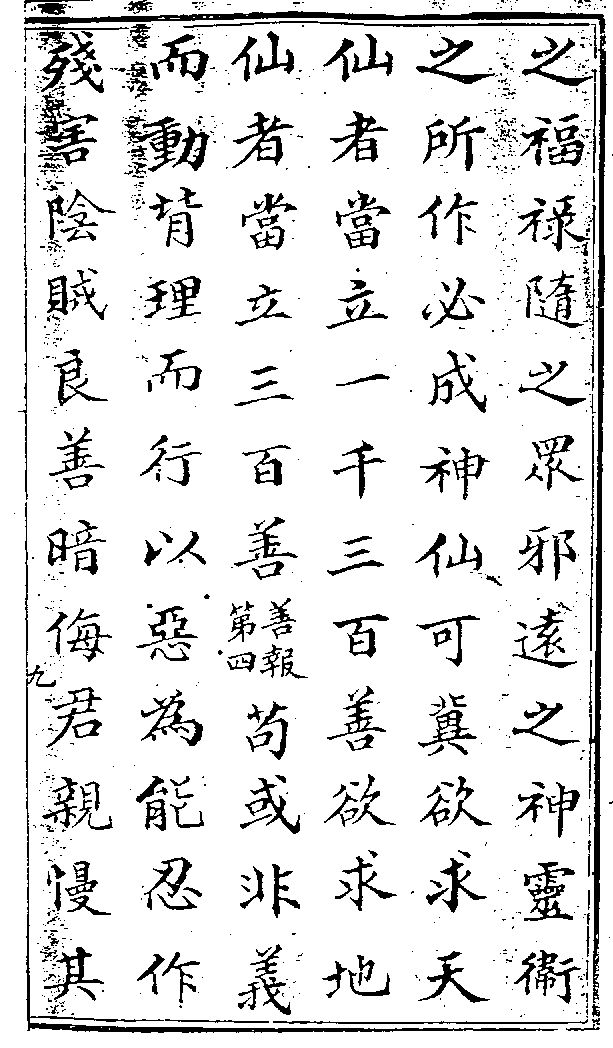 之福祿隨之眾邪遠之神靈衞
之所作必成神仙可冀欲求天
仙者當立一千三百善欲求地
仙者當立三百善善報第四苟或非義
而動背理而行以惡為能忍作
殘害陰賊良善暗侮君親慢其
九